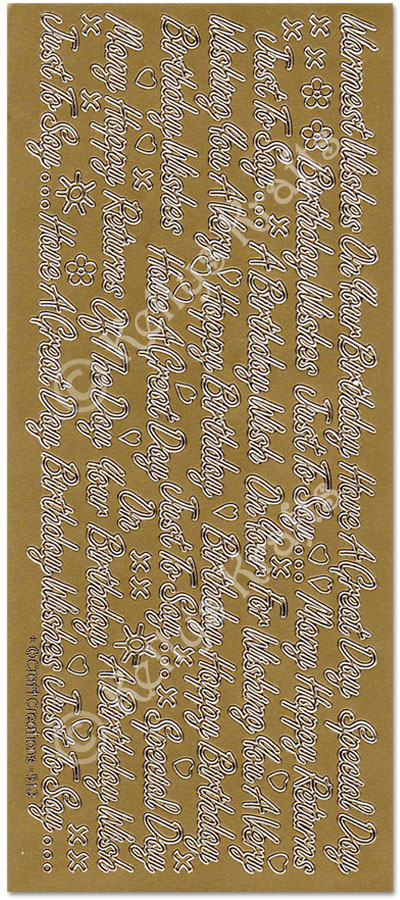 Warmest Wishes On Your Birthday Have A Great Day Special Day
Birthday Wishes Just To Say... Many Happy Returns
Just To Say... A Birthday Wish On Your For Wishing You A Very
Wishing You A Very Happy Birthday Birthday Wishes Happy Birthday
Birthday Wishes Have A Great Day Just To Say... Special Day
Many Happy Returns Of The Day On Your Birthday A Birthday Wish
Just To Say... Have A Great Day Birthday Wishes Just To Say...
+ ©Craft Creations - 513
© Kellys Krafts
© Kellys Krafts